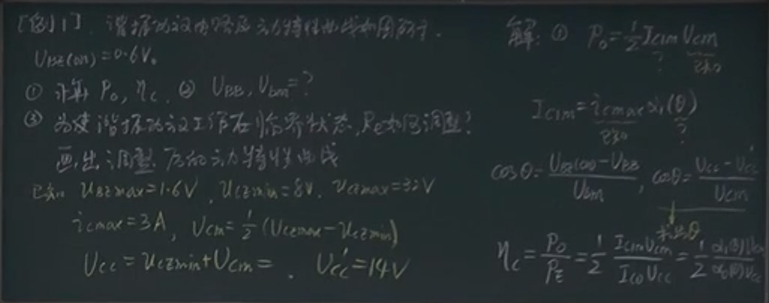 [例1]. 谐振功放电路及动力特性曲线如图所示.
U_BE(on)=0.6V。
① 计算 P₀, η_C. ② U_BB, U_bm=?
③ 为使谐振功放工作在临界状态, Re如何调整?
画出调整后的动力特性曲线
已知: u_BEmax=1.6V, u_CEmin=8V, u_CEmax=32V
i_cmax=3A, U_cm=½(u_CEmax-u_CEmin)
U_CC=u_CEmin+U_cm= . U'_CC=14V
解: ① P₀=½I_c1m U_cm
? 已知
I_c1m=i_cmax α₁(θ)
已知 ?
cosθ=(U_BE(on)-U_BB)/U_bm, cosθ=(U_CC-U'_CC)/U_cm
求出θ
η_C=P₀/P_E=½ I_c1m U_cm/I_c0 U_CC=½ α₁(θ)U_cm/α₀(θ)U_CC